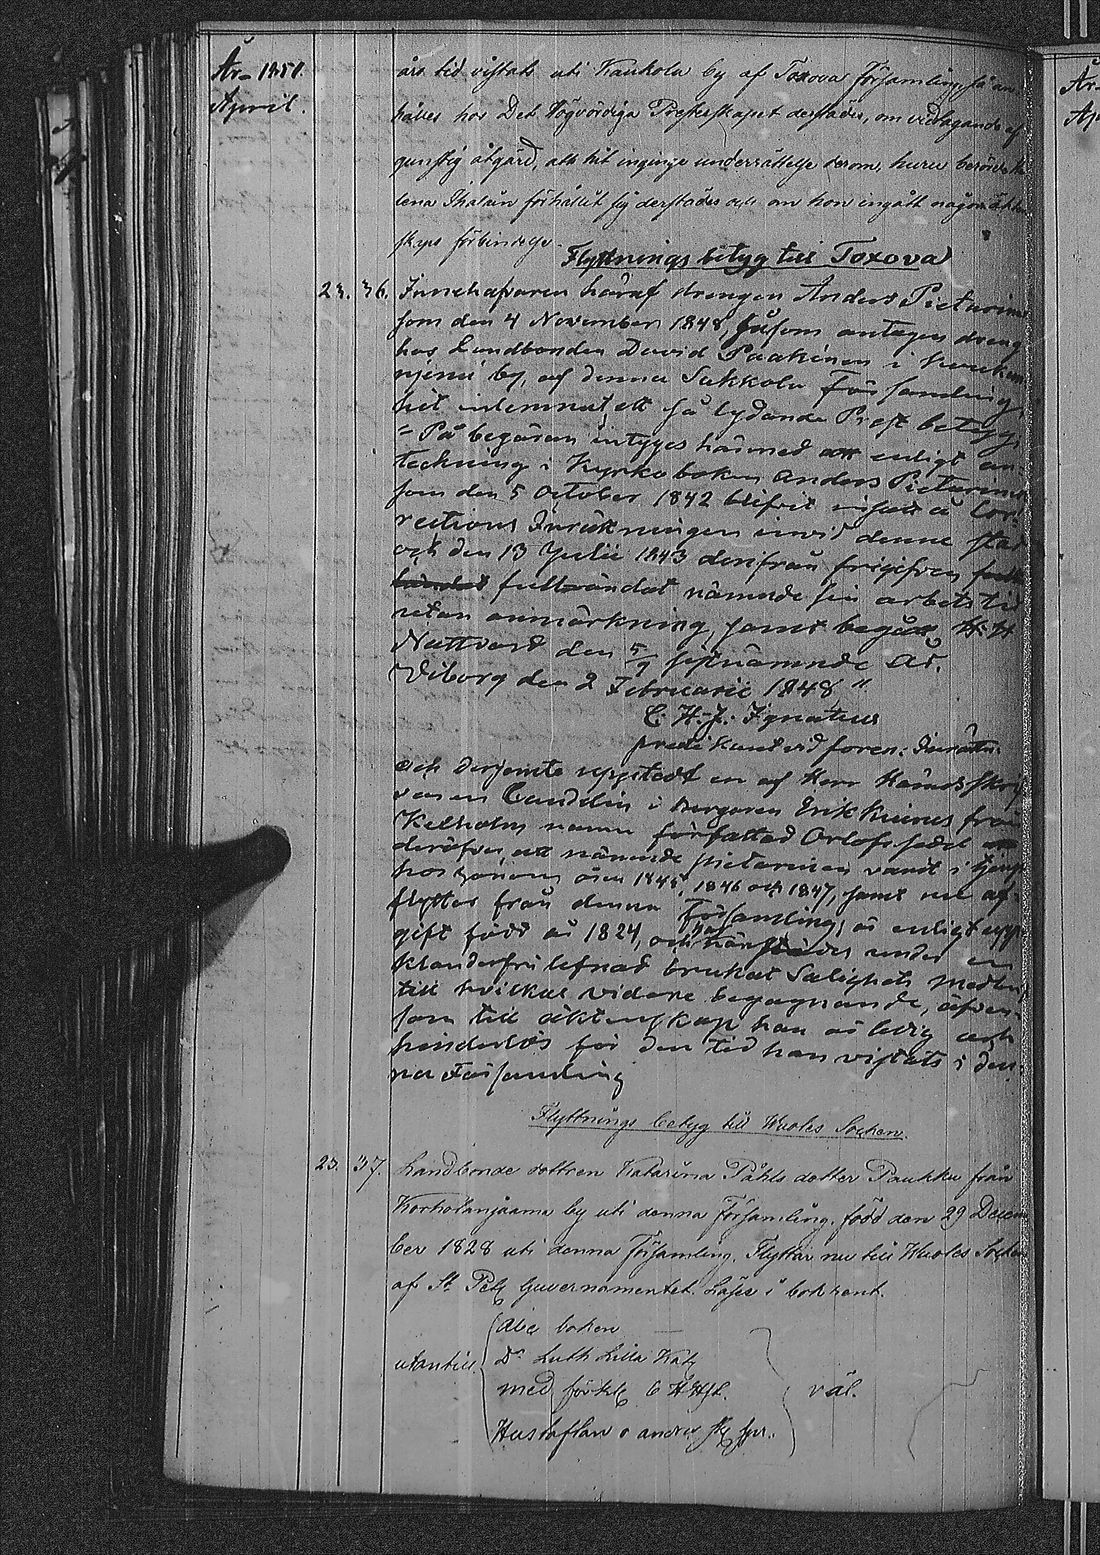 År 1851.
April.
års tid vistats uti Kaukola by af Toxova Församling, få an
hålles hos Det Högvördiga Presterskapet derstädes, om vidtagande af
gunstig åtgärd, att hit inginge underrättelse derom, huru berörde He
lena Ihalain förhållit sig derstädes och om hon ingått något äkten
skaps förbindelse.
Flyttnings betyg till Toxova
23. 36. Innehafvaren häraf drengen Anders Pietarinen
som den 4 November 1848, såsom antagen dreng
hos Landbonden David Paakinen i
by, af denna Sakkola Församling
hit inlemnat ett så lydande Prest betyg:
"På begäran intygas härmed att enligt an
teckning i Kyrkoboken Anders Pietarinen
som den 5 October 1842 blifvit insatt å Cor
rections Inrättningen invid denne stad
och den 13 Julii 1843 derifrån frigifven
fullt användat nämnde sin arbetstid
utan anmärkning, samt begått H. H.
Nattvard den 5/9 sistnämnde År.
Viborg den 2 Februarii 1848"
C. H. J. Ignatius
predikant vid
och derjemte uppstedt en af Herr Häradsskrif
varen i borgaren Erik från
Kexholm namn författad Orlofssedel
deröfver att nämnde Pietarinen varit i tjenst
hos honom åren 1845, 1846 och 1847, samt nu af
flyttar från denna Församling, är enligt upp
gift född år 1824, och har härstädes under en
klanderfri lefnad brukat Salighets medlen
till hvilkas vidare begagnande, äfven
som till äktenskap han är ledig och
hinderlös för den tid han vistats i den
na Församling
Flyttnings betyg till Socken.
23. 37. Landbonde dottren Katarina Påhls dotter Paukku från
by uti denna Församling, född den 29 Decem
ber 1828 uti denna Församling, Flyttar nu till Socken
af St Petb Guvernamentet. Läser i bok rent.
utantill
Abc boken
Dr Luth Lilla Kat,
med förkl. 6 H Hfl.
Hustaflan o andra sk spr.
väl.
År
Ap